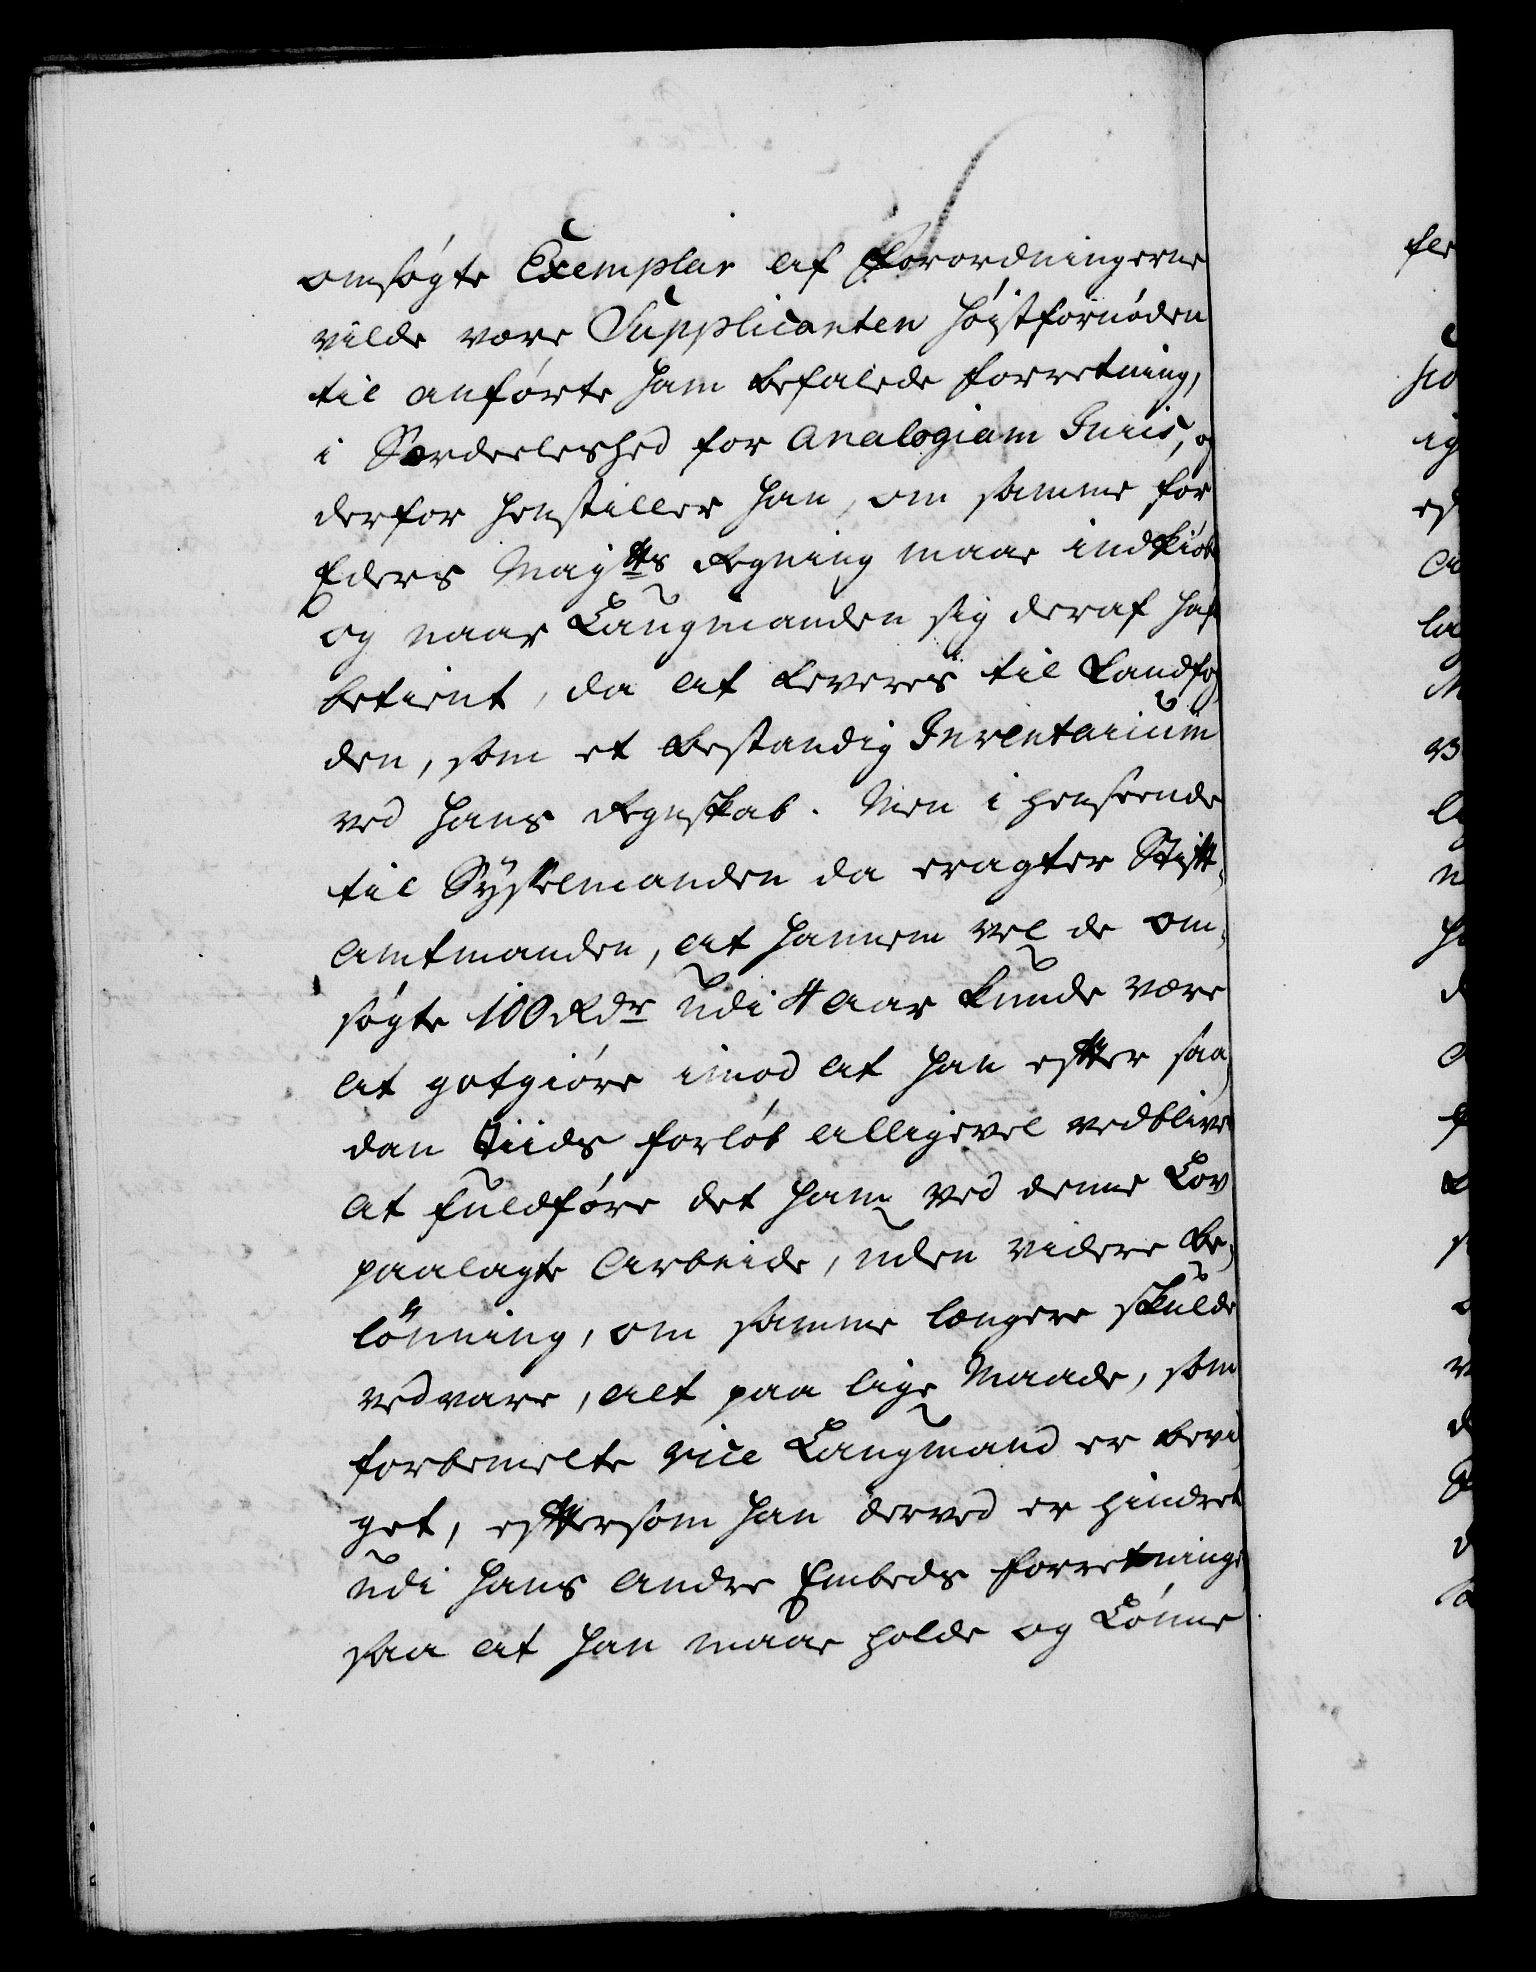 omsøgte Exemplar af Forordningerne
vilde være Supplicanten høistfornøden
til anførte ham befalede Forretning,
i Særdeeleshed for Analogiam Juris, og
derfor henstiller han, om samme for
Eders Mayts Regning maae indkiøb
og naar Laugmanden sig deraf haf
betient, da at leveres til Landfog
den, som et bestandig Inventarium
ved hans Regnskab. Men i henseende
til Sysselmanden da eragter Stift-
amtmanden, at hannem vel de om-
søgte 100 Rdr udi 4 Aar kunde være
at gotgiøre imod at han efter saa-
dan Tiids forløb alligevel vedblive
at fuldføre det ham ved denne Lov
paalagte Arbeide, uden videre Be-
lønning, om samme længere skulde
vedvare, alt paa lige Maade, som
forbemelte Vice Laugmand er bevil
get, eftersom han derved er hindret
udi hans andre Embeds Forretninge
saa at han maae holde og Lønne